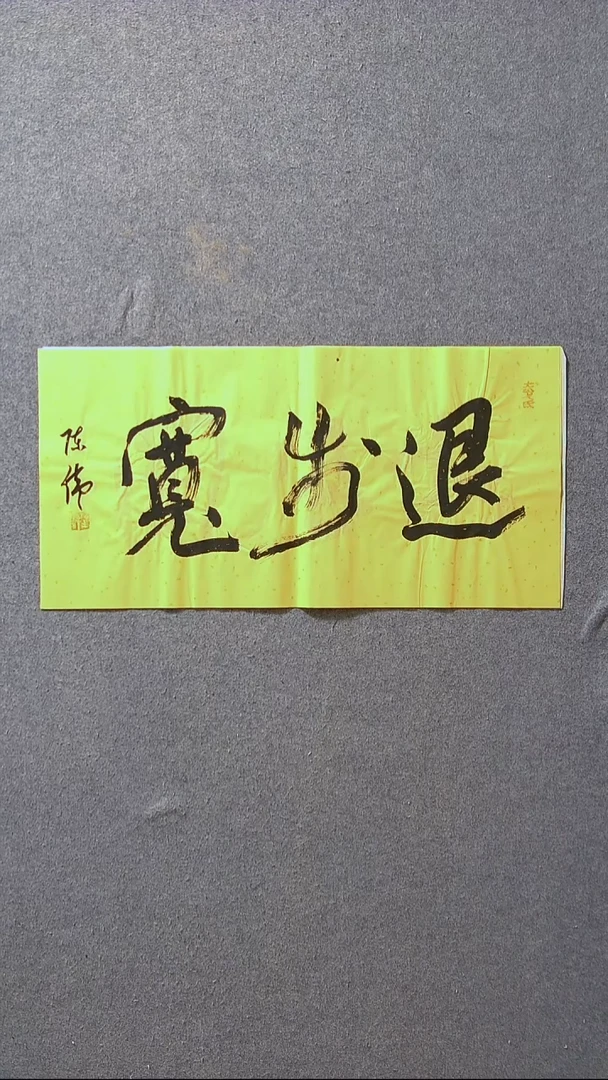 退步寬
陈伟